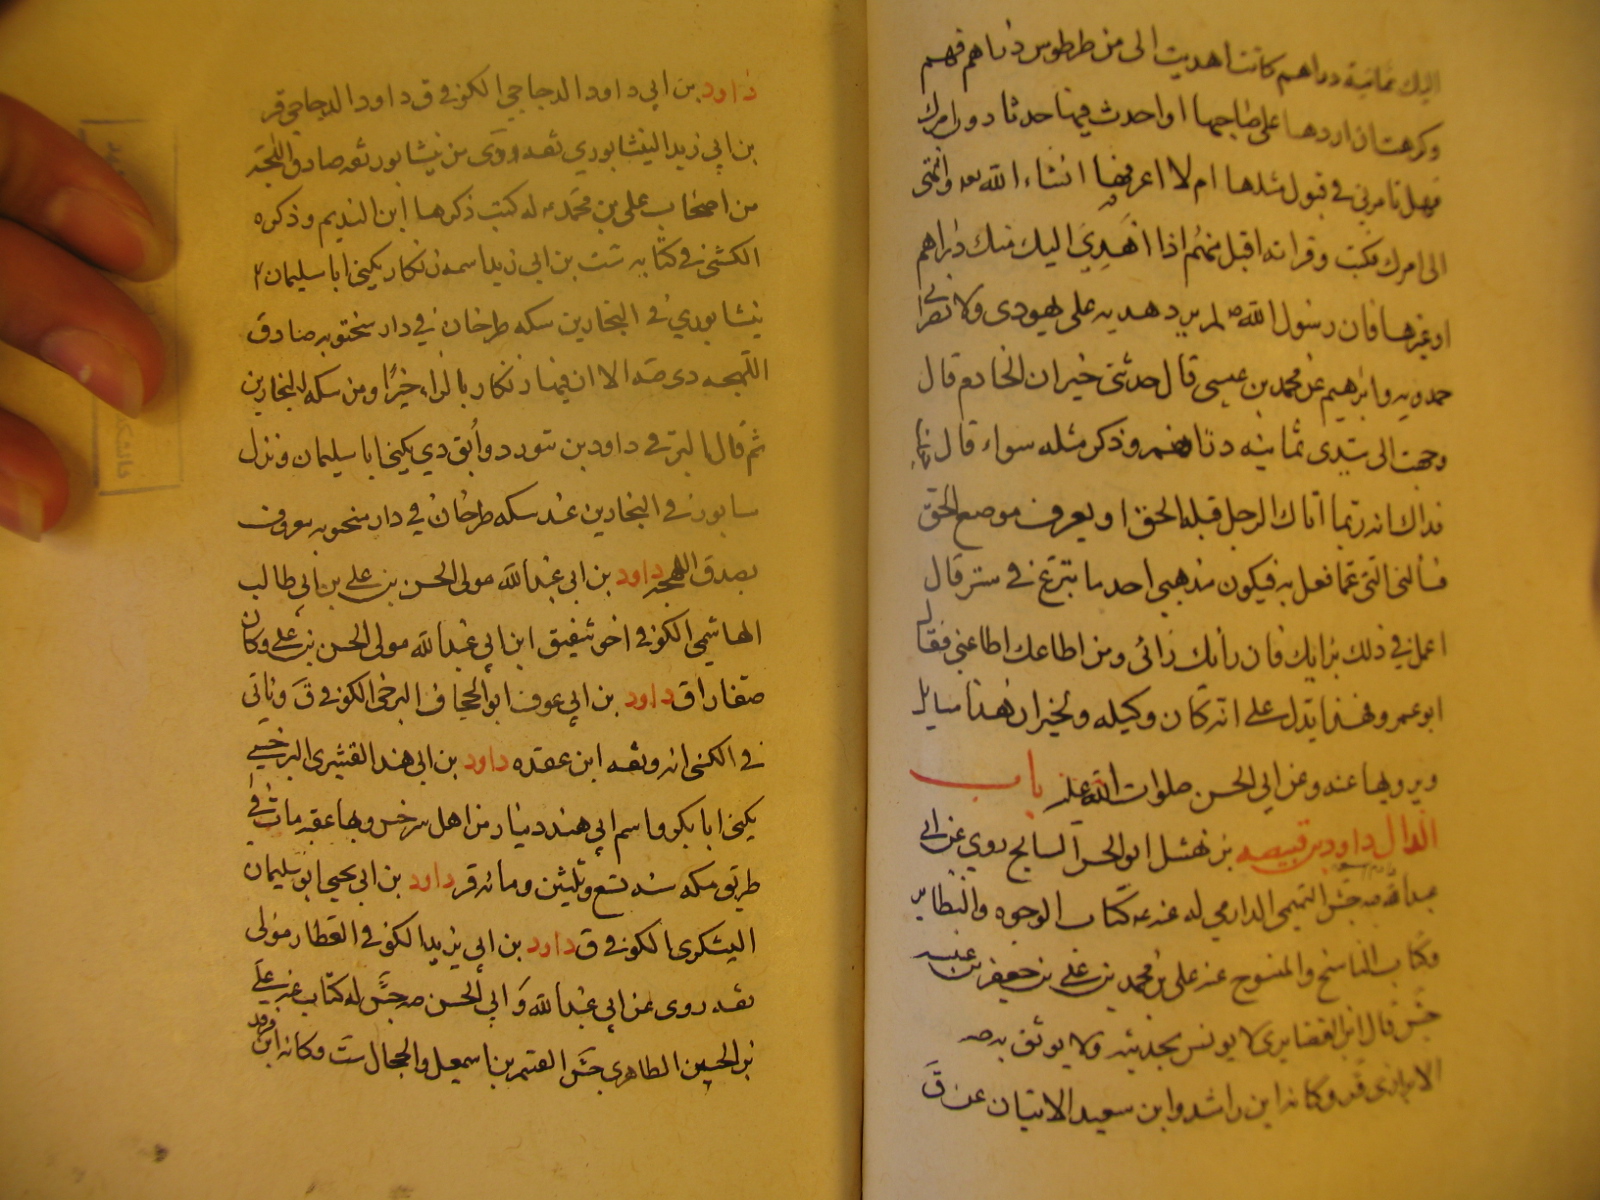 اليك ثمانية دراهم كانت اهديت الى من طرطوس دراهم فهم
وكرهت ان اردها على صاحبها او احدث فيها حدثا دون امرك
فهل تامرني في قبول مثلها ام لا اعرفها انشاء الله بعد وانتهى
الى امرك فكتب وقراته اقبل منهم اذا اهدى اليك منك دراهم
او غيرها فان رسول الله ص لم يرد هديه على يهودى ولا نصرانى
حمدويه وابرهيم عن محمد بن عيسى قال حدثنى خيران الخادم قال
وجهت الى سيدى ثمانيه دراهم وذكر مثله سواء قال
فداك انه ربما اتاك الرجل قبله الحق او يعرف موضع الحق
فسألنى عما فعل به فيكون مذهبى احد ما يتبرع في ستر قال
اعمل في ذلك برايك فان رأيك رائى ومن اطاعك اطاعنى فقال
ابو عمرو هذا يدل على انه كان وكيله ولخيران هذا مسايل
ويرويها عنه وعن ابي الحسن صلوات الله عليهم باب
الدال داود بن قبيصه بن نهشل ابو الحسن السايح روي عن ابى
عبد الله جش التميمى الدارمي له عنه كتاب الوجوه والنظاير
وكتاب الناسخ والمنسوخ عنه على بن محمد بن على بن جعفر بن عنبسه
جش قال ابن الغضايرى لا يونس بحديثه ولا يوثق به
الابزارى قر وكانه ابن راشد وابن سعيد الاتيان عن ق
داود بن ابي داود الدجاجي الكوفي ق داود الدجاجي قر
بن ابي زيد النيشابوري ثقه من نيشابور ثقه صادق اللهجه
من اصحاب على بن محمد له كتب ذكرها ابن النديم وذكره
الكشى في كتابه ست بن ابي زيد اسمه زنكار يكنى ابا سليمان
نيشابوري في النجارين سكه طرخان في دار سختويه صادق
اللهجه دى صه الا ان فيها زنكار بالراء اخيرًا ومن سكه النجارين
ثم قال البرقى داود بن بنورد وأبق دي يكنى ابا سليمان ونزل
سابور في النجارين عند سكه طرخان في دار سختويه معروف
بصدق اللهجه داود بن ابي عبد الله مولى الحسن بن على بن ابي طالب
الهاشمي الكوفي اخو شفيق ابن ابي عبد الله مولى الحسن بن على وكان
صفارا ق داود بن ابي عوف ابو الجحاف البرجمى الكوفي ق وياتى
في الكنى انه وثقه ابن عقده داود بن ابي هند القشيرى السرخسى
يكنى ابا بكر واسم ابي هند دينار من اهل سرخس وبها عقبه مات في
طريق مكه سنه تسع وثلثين ومائه قر داود بن ابي يحيى ابو سليمان
اليشكرى الكوفي ق داود بن ابي يزيد الكوفي العطار مولى
ثقه روى عن ابي عبد الله وابي الحسن صه جش له كتاب عنه على
بن الحسين الطاهرى جش القسم بن اسمعيل والحجال ست وكانه ابن فرقد